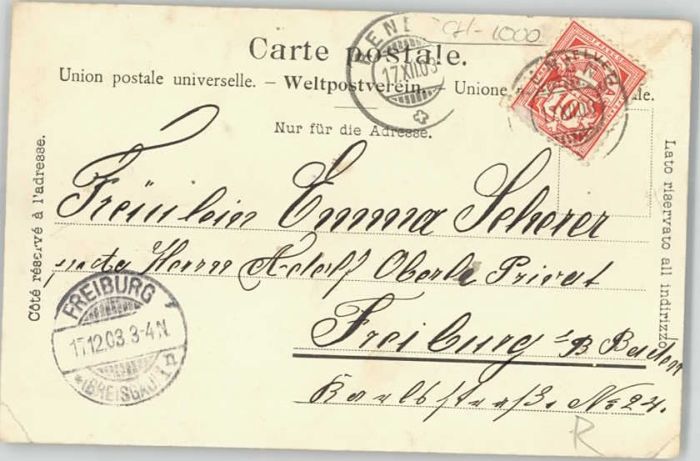 CH-1000
Carte postale.
Union postale universelle. – Weltpostverein. – Unione
Nur für die Adresse.
Côté réservé à l'adresse.
Lato riservato all indirizzo
17.XII.03
HELVETIA
10
Fräulein Emma Scherer
Herrn Adolf Oberle Privat
Freiburg i/B Baden
Karlsstraße. No 24.
FREIBURG
17.12.03 3-4N.
(BREISGAU)
R